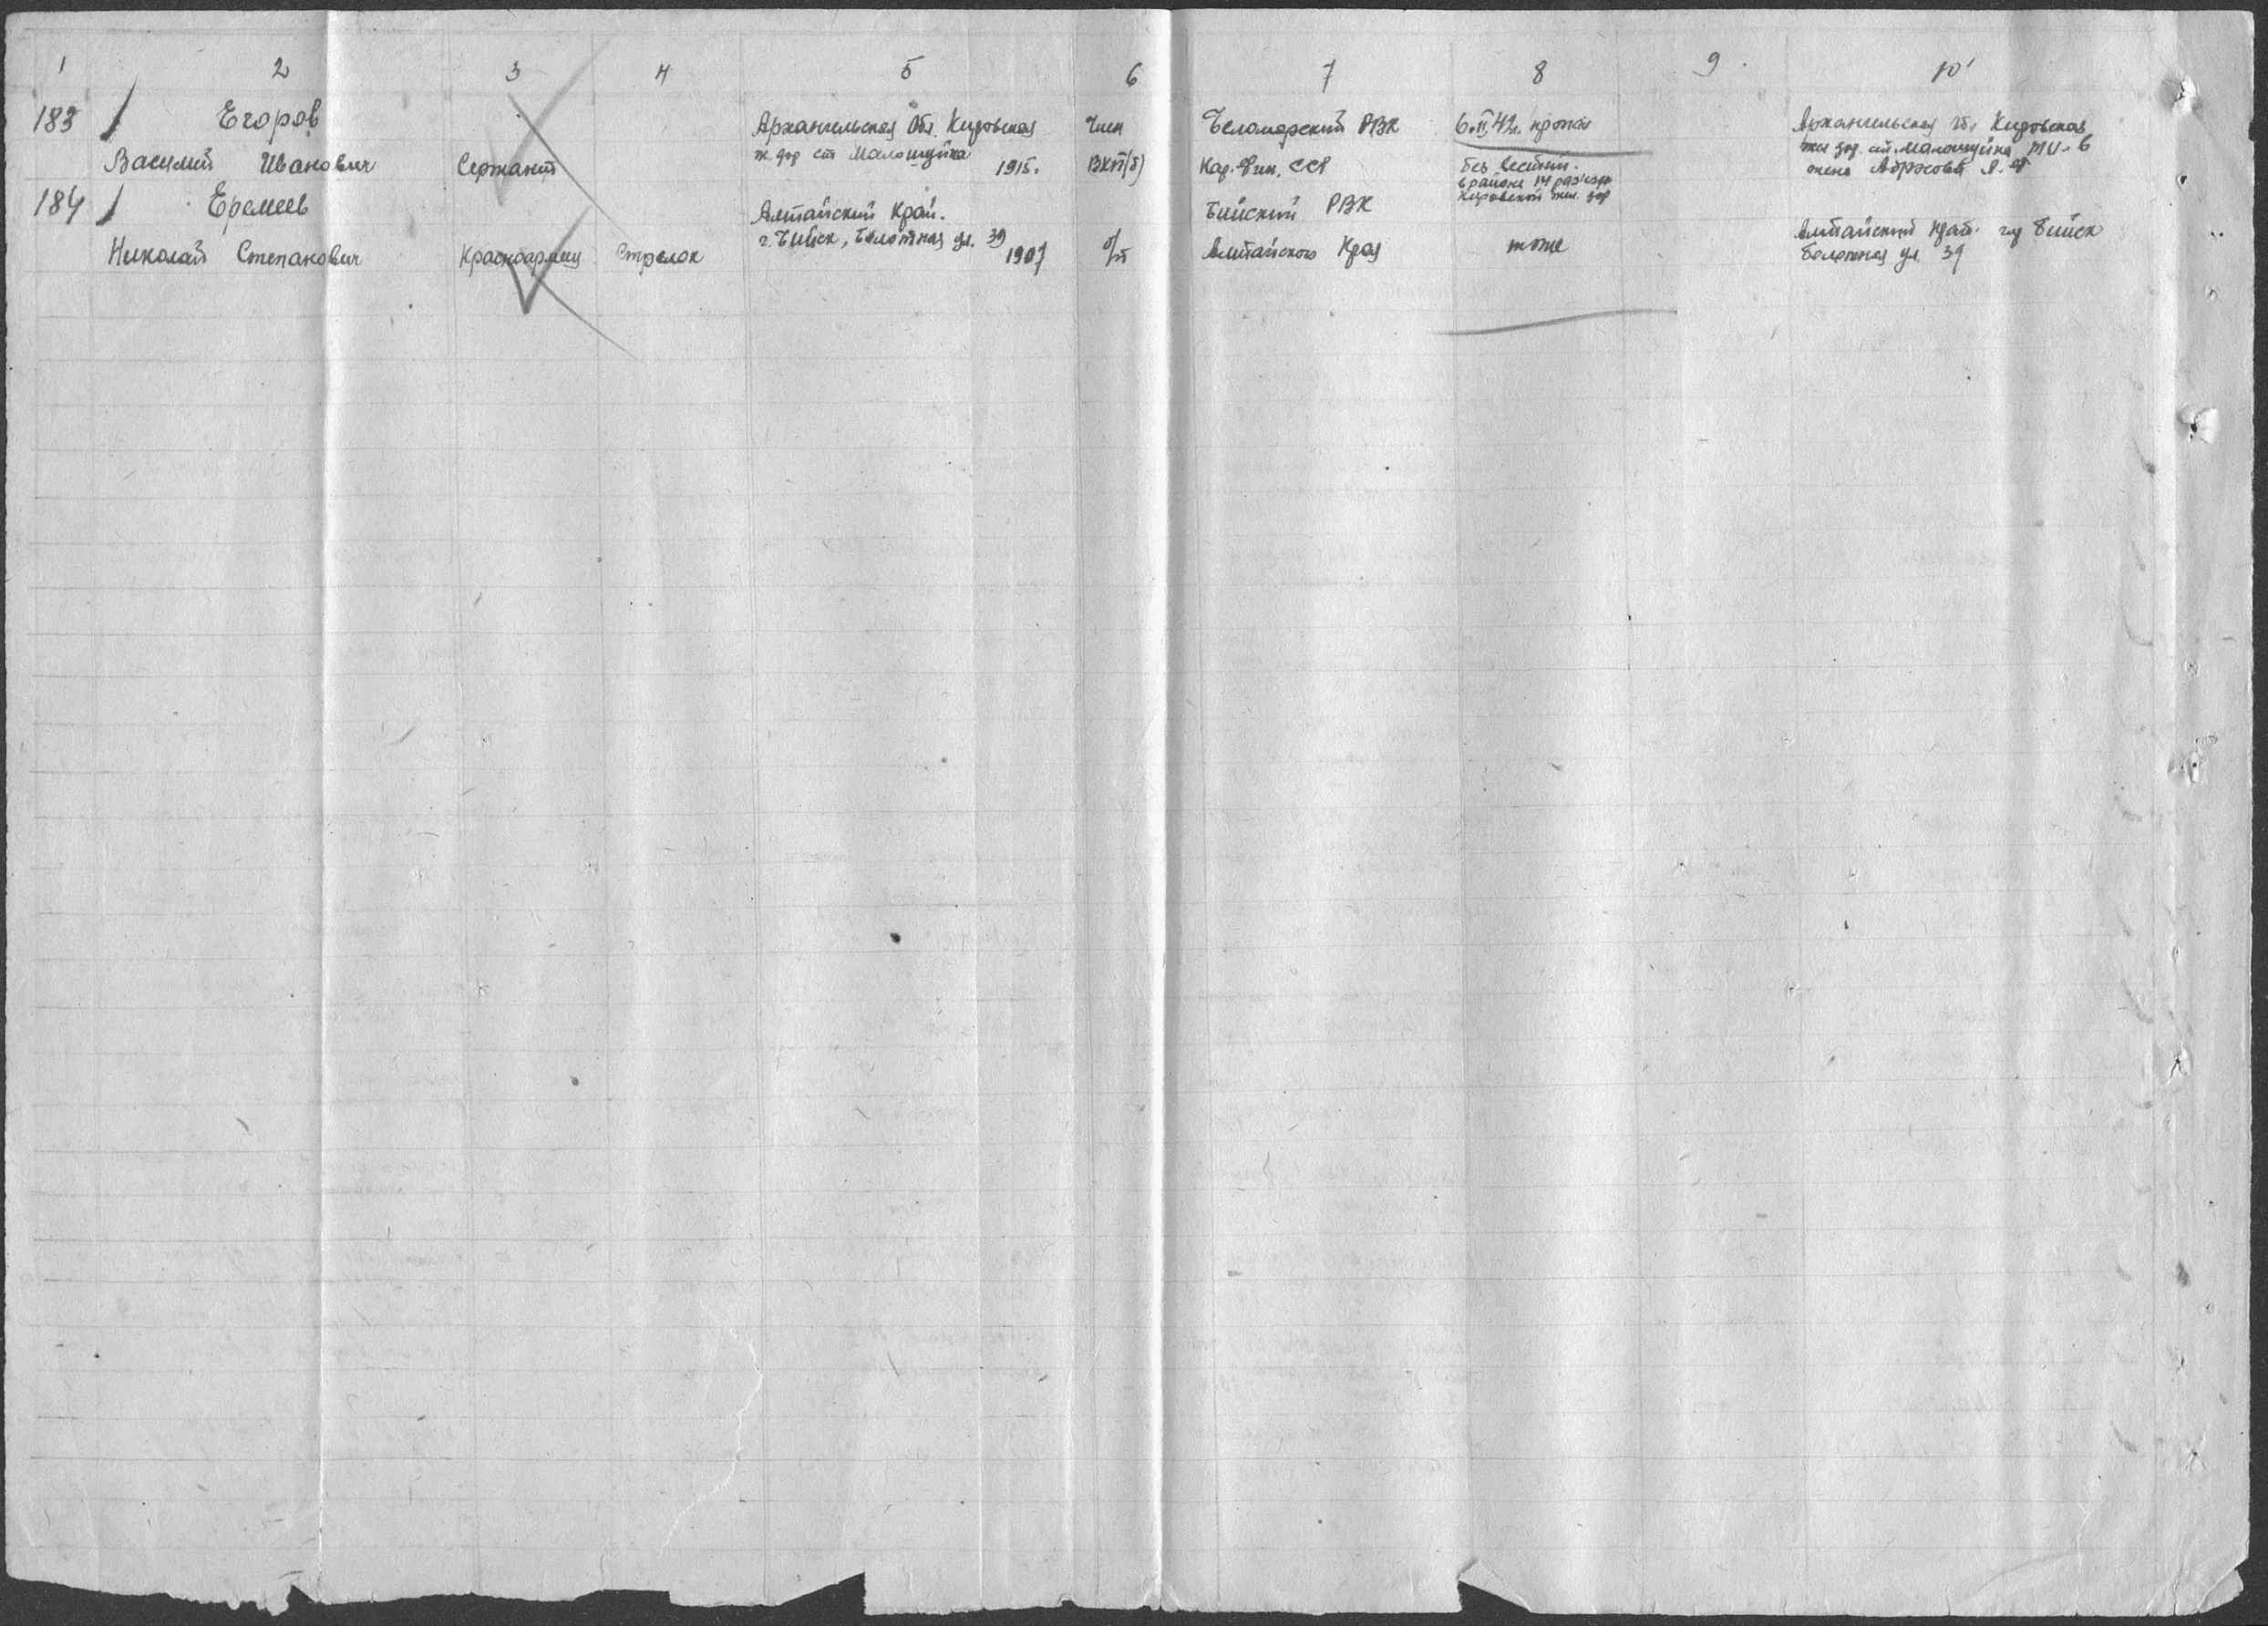 1 2 3 4 5 6 7 8 9 10
183 Егоров
Василий Иванович
Сержант
Архангельская Обл. Кировская
ж. дор ст Малошуйка
1915.
Член
ВКП(б)
Беломорский РВК
Кар. Фин. ССР
6.II.42г. пропал
без вести.
в районе 14 разъезда
Кировской жел. дор
Архангельская об. Кировская
жел дор. ст. Малошуйка
жена
184 Еремеев
Николай Степанович
Красноармеец
Стрелок
Алтайский Край.
г. Бийск, Болотная ул. 39
1907
б/п
Бийский РВК
Алтайского Края
тоже
Алтайский Край. гор Бийск
Болотная ул. 39